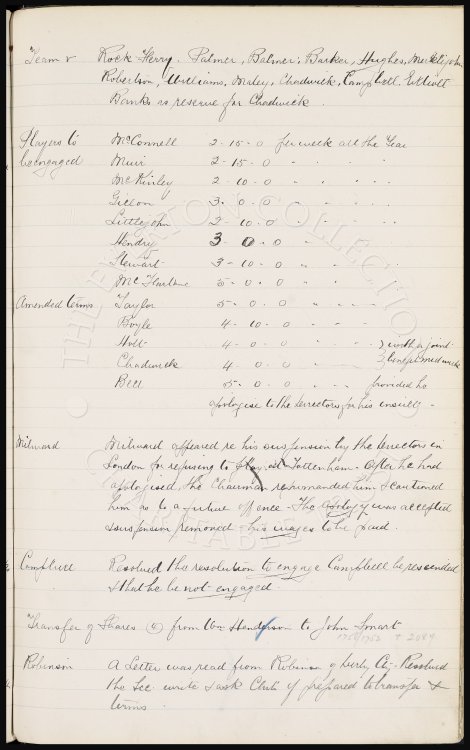 Team v Rock Ferry. Palmer, Balmer, Barker, Hughes, Meiklejohn
Robertson, Williams, Maley, Chadwick, Campbell, Elliott
Banks as reserve for Chadwick.
Players to be engaged
McConnell 2-15-0 per week all the Year
Muir 2-15-0 " " "
McKinley 2-10-0 " " "
Gillon 3-0-0 " " "
Littlejohn 2-10-0 " " "
Hendry 3-0-0 " "
Stewart 3-10-0 " "
McFarlane 5-0-0
Amended terms Taylor 5-0-0 " "
Boyle 4-10-0 " "
Holt 4-0-0 " "
Chadwick 4-0-0 " "
Bell 5-0-0 provided he
apologise to the Directors for his insults -
Milward Milward appeared re his suspension by the Directors in
London for refusing to play at Tottenham. After he had
apologised, the Chairman reprimanded him & cautioned
him as to a future offence - The apology was accepted
& suspension removed - his wages to be paid.
Campbell Resolved the resolution to engage Campbell be rescended
& that he be not engaged.
Transfer of Shares (4) from Wm Henderson to John Smart
Robinson A Letter was read from Robinson of Derby Cty - Resolved
the Sec write & ask Club if prepared to transfer &
terms
THE EVERTON COLLECTION